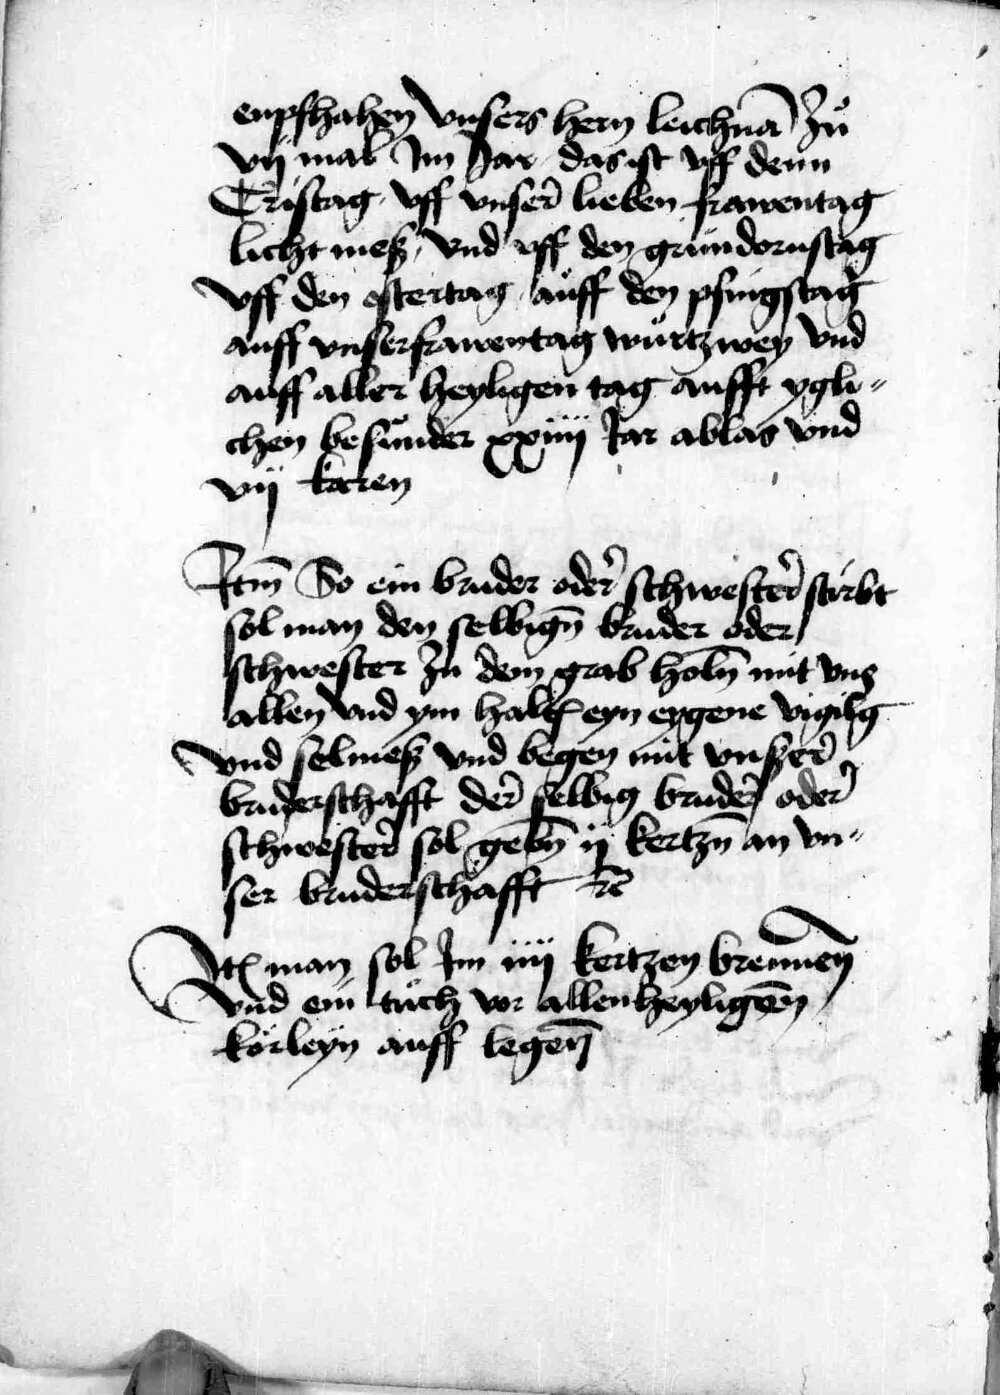 enpfhahen vnsers hern leichnā Zů
vij mal Im Jar das ist vff denn
Cristag vff vnser lieben frawentag
licht mesß vnd vff den gründornstag
vff den ostertag auff den pfingstag
auff vnserfrawentag würtzwey vnd
auff aller heyligen tag aufft ygli=
chen besůnder xxiiij Jar ablas vnd
vij karen
Itm̄ So ein bruder oder schwester stirbt
sol man den selbign̄ bruder oder
schwester Zu dem grab holn̄ mit vns
allen vnd ym halt eyn eygene vigilg
vnd selmesß vnd begen mit vnßer
bruderschafft der selbig bruder oder
schwester sol gebn̄ ij kertzn̄ an vn=
ser bruderschafft rc
Itē man sol Im iiij kertzen brennen̄
vnd ein tůch vor allenheyligenn̄
körleyn auff legen̄